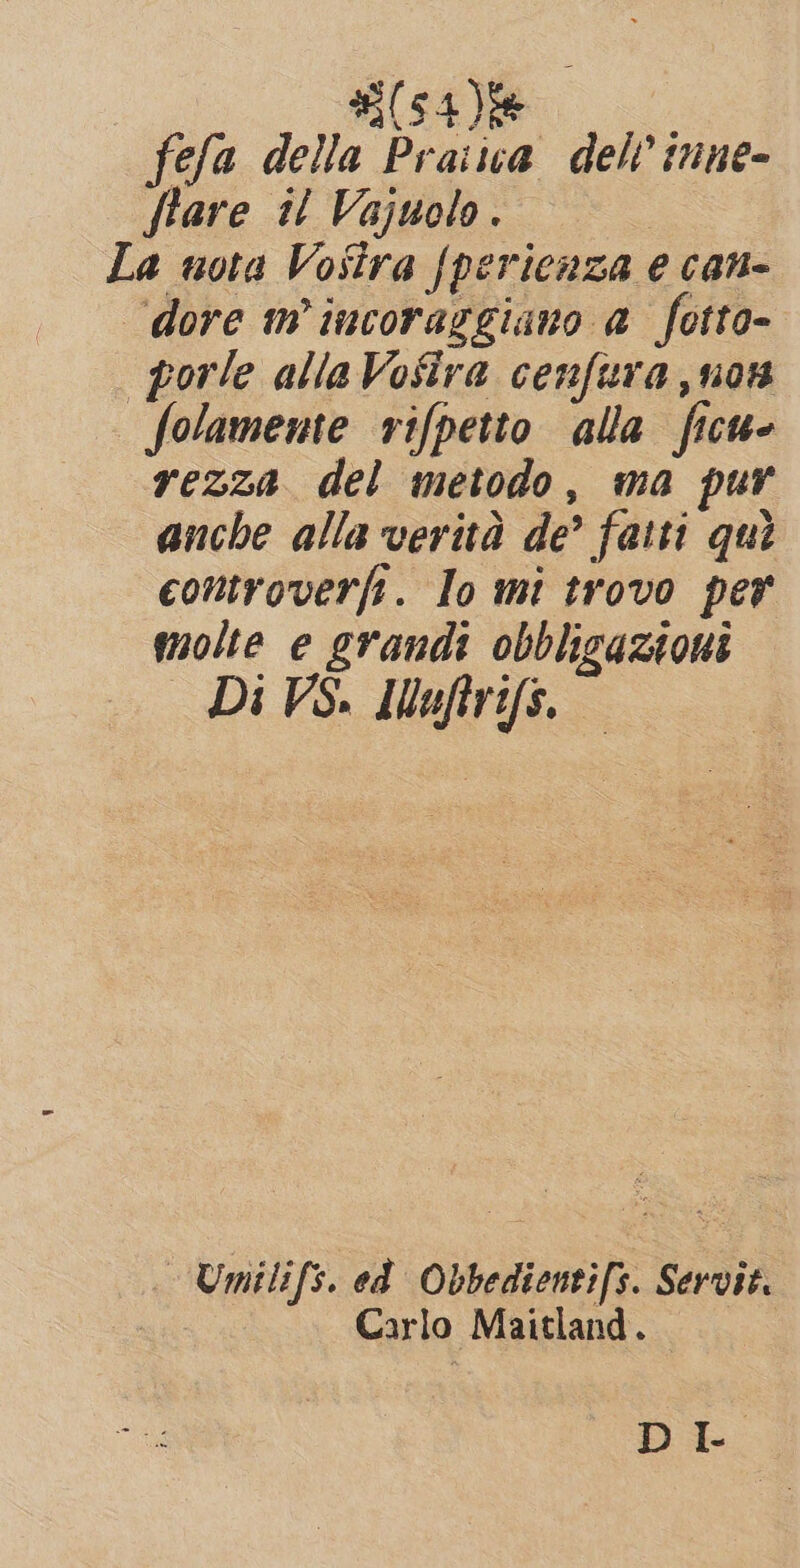 (54)
ſeſa della Pratica dell' inne-
ſtare il Vajuolo.
La nota Voſtra ſperienza e can-
dore m' incoraggiano a ſotto-
porle alla Voſtra cenſura, non
ſolamente riſpetto alla ſicu-
rezza del metodo, ma pur
anche alla verità de' fatti quì
controverſi. Io mi trovo per
molte e grandi obbligazioni
Di VS. Illuſtriſs.
Umiliſs. ed Obbedientiſs. Servit.
Carlo Maitland.
D I-